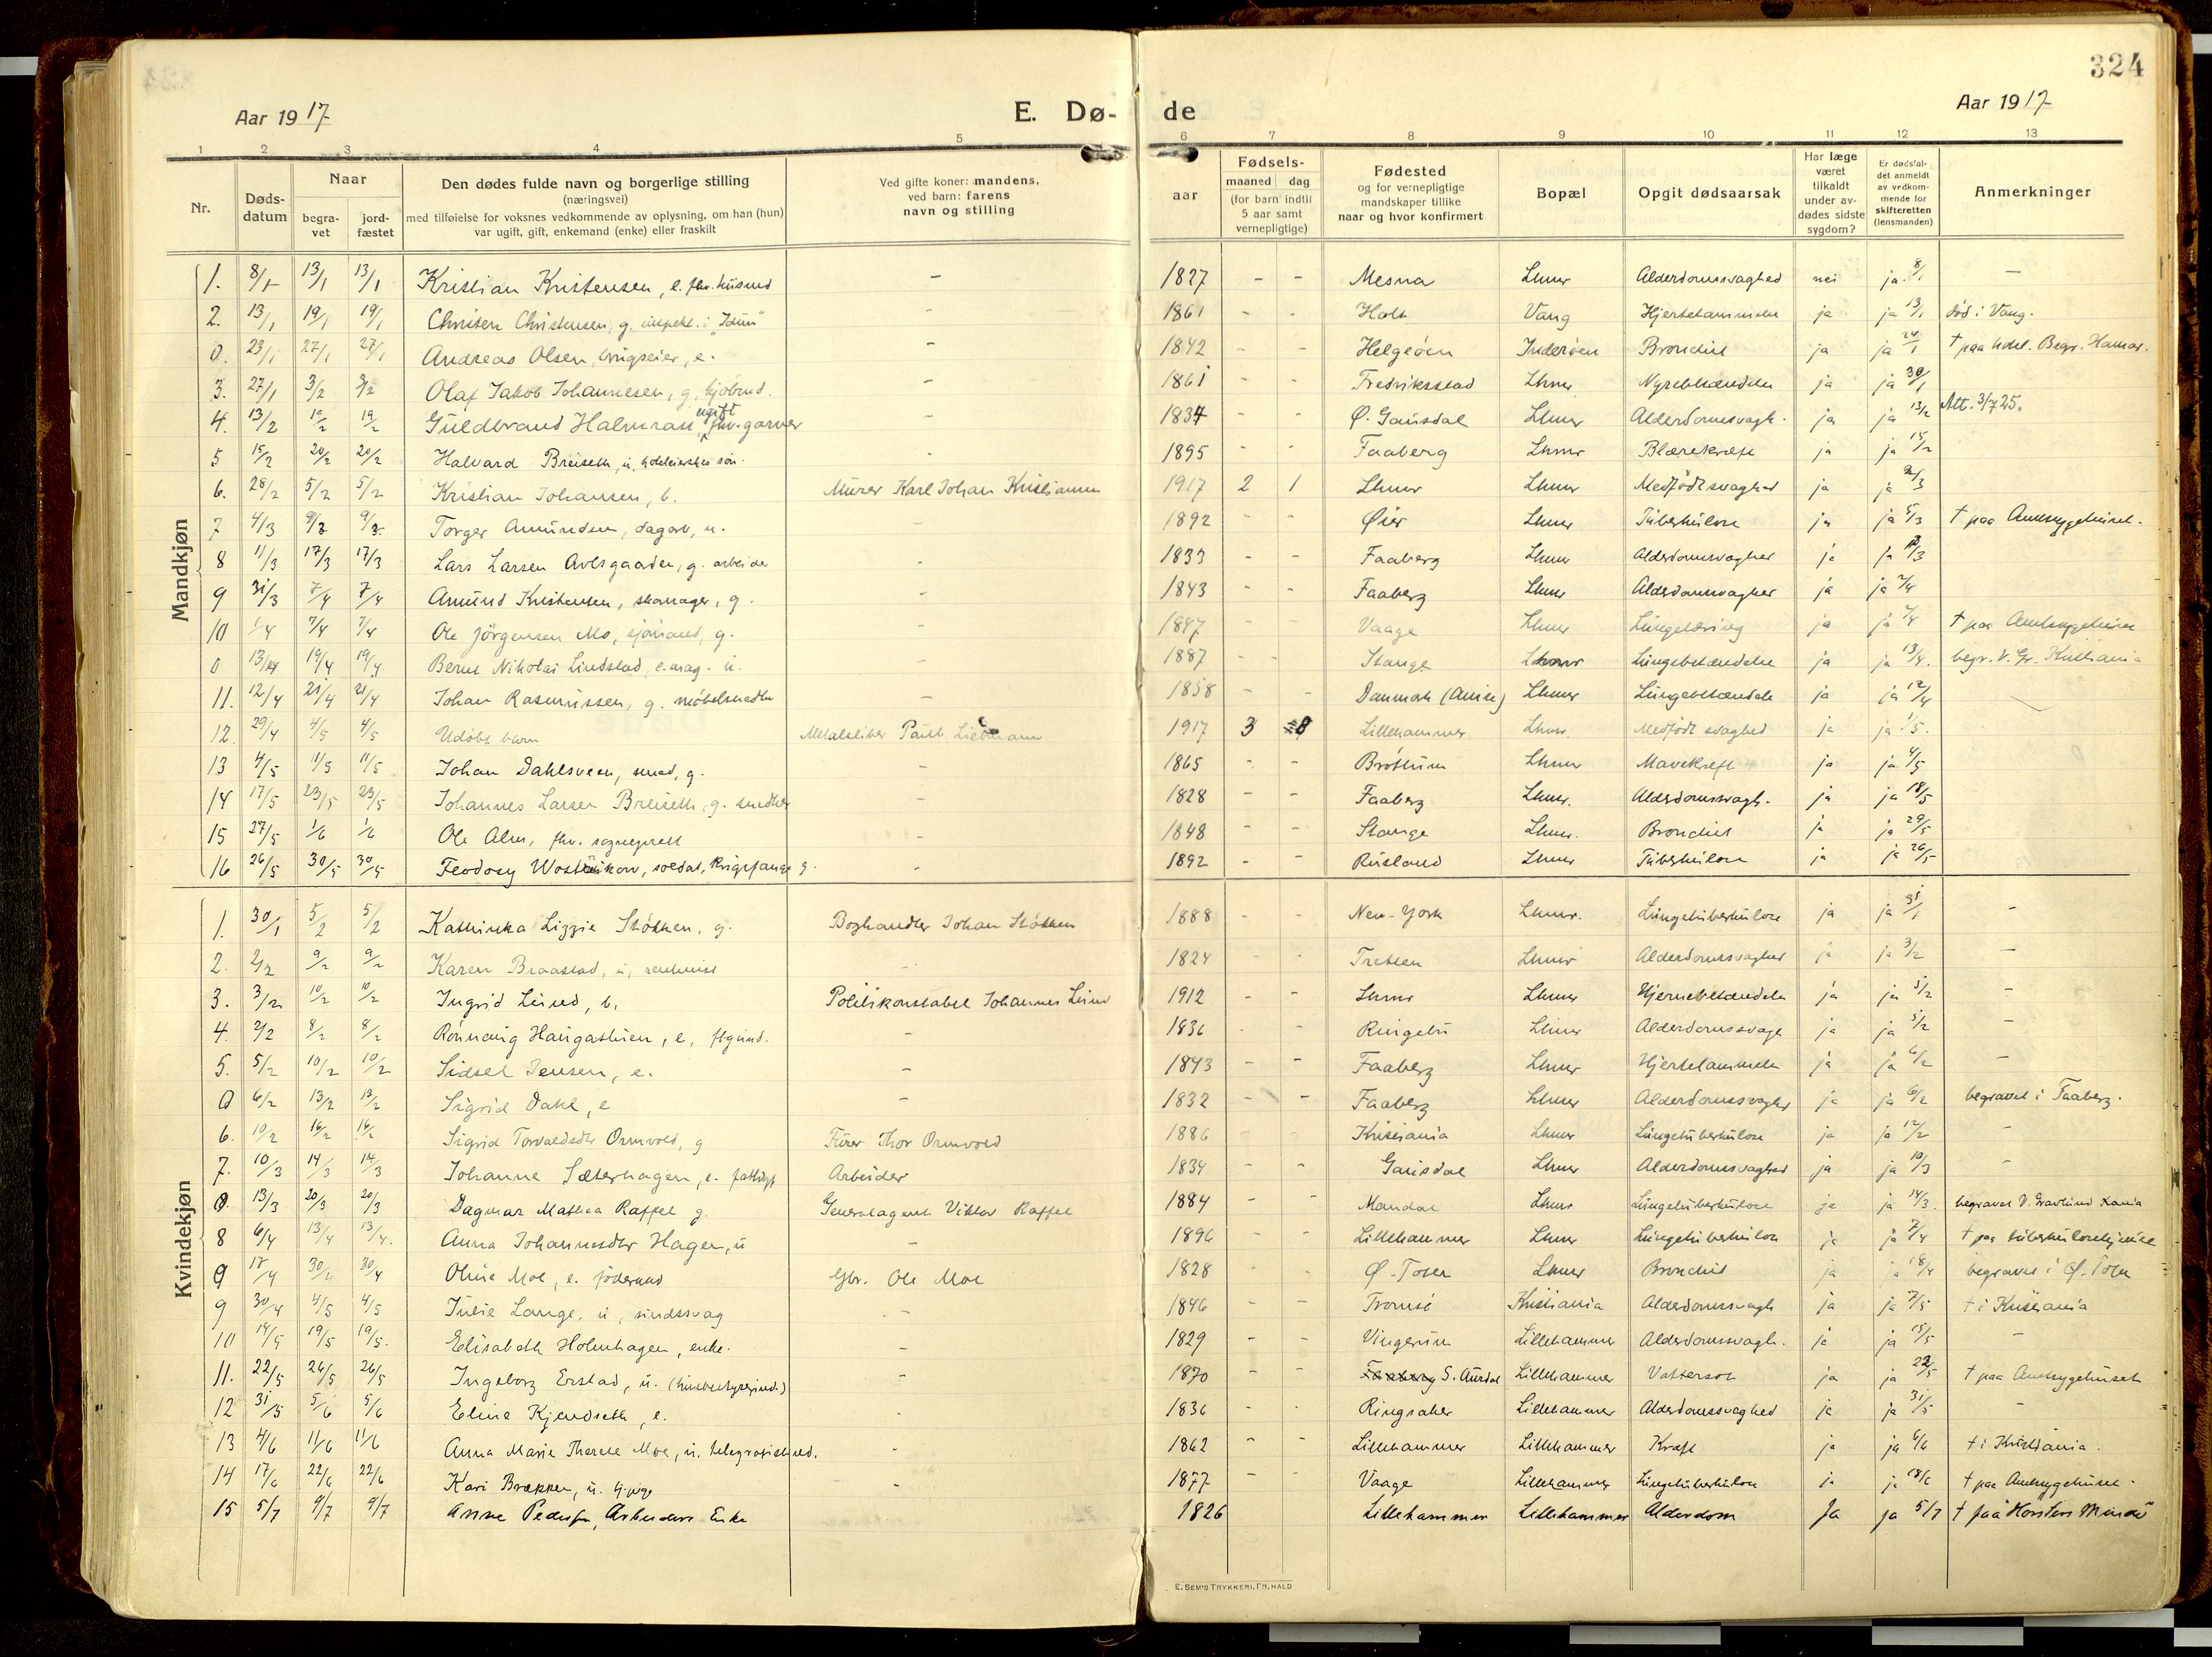 324
Aar 1917 E. Dø- de Aar 1917
1 2 3 4 5 6 7 8 9 10 11 12 13
Nr. Døds-datum Naar begra-vet jord-fæstet Den dødes fulde navn og borgerlige stilling (næringsvei) med tilføielse for voksnes vedkommende av oplysning, om han (hun) var ugift, gift, enkemand (enke) eller fraskilt Ved gifte koner: mandens, ved barn: farens navn og stilling aar Fødsels- maaned dag (for barn indtil 5 aar samt vernepligtige) Fødested og for vernepligtige mandskaper tillike naar og hvor konfirmert Bopæl Opgit dødsaarsak Har læge været tilkaldt under av-dødes sidste sygdom? Er dødsfal-det anmeldt av vedkom-mende for skifteretten (lensmanden) Anmerkninger
Mandkjøn
1. 8/1 13/1 13/1 Kristian Kristensen, e. fhv. husmd - 1827 - - Mesna Lhmr Alderdomssvaghed nei ja 8/1 -
2. 13/1 19/1 19/1 Christen Christensen, g. inspekt. i "Idun" - 1861 - - Holt Vang Hjertelammelse ja ja 13/1 død i Vang.
0. 23/1 27/1 27/1 Andreas Olsen, brugseier, e. - 1842 - - Helgeøen Inderøen Bronchit ja ja 24/1 † paa hotel. Begr. Hamar.
3. 27/1 3/2 3/2 Olaf Jakob Johannesen, g. kjøbmd. - 1861 - - Fredriksstad Lhmr Nyrebetændelse ja ja 30/1
4. 13/2 19/2 19/2 Guldbrand Halmrast, ugift fhv. garver - 1834 - - Ø. Gausdal Lhmr Alderdomssvagh. ja ja 13/2 Att. 3/7 25.
5 15/2 20/2 20/2 Halvard Breiseth, u, hoteleierskes søn. - 1895 - - Faaberg Lhmr Blærekræft ja ja 15/2
6. 28/2 5/2 5/2 Kristian Johansen, b. Murer Karl Johan Kristiansen 1917 2 1 Lhmr Lhmr Medfødt svaghed ja ja 2/3
7 4/3 9/3 9/3 Torger Amundsen, dagarb, u. - 1892 - - Øier Lhmr Tuberkulose ja ja 5/3 † paa Amtsygehuset.
8 11/3 17/3 17/3 Lars Larsen Avlsgaarden, g. arbeider - 1833 - - Faaberg Lhmr Alderdomssvaghed ja ja /3
9 31/3 7/4 7/4 Amund Kristensen, skomager, g. - 1843 - - Faaberg Lhmr Alderdomssvaghed ja ja 2/4
10 /4 7/4 7/4 Ole Jørgensen Mo, sjømand, g. - 1847 - - Vaage Lhmr Lungetæring ja ja /4 † paa Amtsygehuset
0 13/4 19/4 19/4 Bernt Nikolai Lindstad, e.mag. u. - 1887 - - Stange Lhmr Lungebetændelse ja ja 13/4. begr. V. Gr. Kristiania
11. 12/4 21/4 21/4 Johan Rasmussen, g. møbelsnedker - 1858 - - Danmark Lhmr Lungebetændelse ja ja 12/4
12. 29/4 4/5 4/5 Udøbt barn Metalsliber Paul 1917 3 8 Lillehammer Lhmr. Medfødt svaghed ja ja 1/5.
13 4/5 11/5 11/5 Johan Dahlsveen, smed, g. - 1865 - - Brøttum Lhmr Mavekræft ja ja 4/5
14 17/5 23/5 23/5 Johannes Larsen Breiseth, g. snedker - 1828 - - Faaberg Lhmr. Alderdomssvagh. ja ja 18/5
15 27/5 1/6 1/6 Ole Alm, fhv. sogneprest - 1848 - - Stange Lhmr. Bronchit ja ja 29/5
16 26/5 30/5 30/5 Feodosy Wostrikow, soldat, krigsfange g. - 1892 - - Rusland Lhmr Tuberkulose ja ja 26/5
Kvindekjøn
1. 30/1 5/2 5/2 Kathinka Lizzie Støkken, g. Boghandler Johan Støkken 1888 - - New-York Lhmr. Lungetuberkulose ja ja 31/1 -
2. 2/2 9/2 9/2 Karen Braastad, u, rentenist - 1824 - - Tretten Lhmr Alderdomssvaghed ja ja 3/2 -
3. 3/2 10/2 10/2 Ingrid Lund, b. Politikonstabel Johannes Lund 1912 - - Lhmr Lhmr Hjernebetændelse ja ja 5/2 -
4. 2/2 8/2 8/2 Rønnaug Haugastuen, e, - 1836 - - Ringebu Lhmr Alderdomssvagh ja ja 5/2 -
5. 5/2 10/2 10/2 Sidsel Jensen, e. - 1843 - - Faaberg Lhmr Hjertelammelse ja ja 6/2 -
0 6/2 13/2 13/2 Sigrid Dahl, e - 1832 - - Faaberg Lhmr Alderdomssvaghed ja ja 6/2 begravet i Faaberg.
6. 10/2 16/2 16/2 Sigrid Torvaldsdtr Ormvold, g Furer Thor Ormvold 1886 - - Kristiania Lhmr Lungetuberkulose ja ja 12/2 -
7. 10/3 14/3 14/3 Johanne Sæterhagen, e. fattigl Arbeider 1834 - - Gausdal Lhmr Alderdomssvaghed ja ja 10/3 -
0. 13/3 20/3 20/3 Dagmar Mathea Raffel g. Generalagent Viktor Raffel 1884 - - Mandal Lhmr Lungetuberkulose ja ja 14/3. begravet V. Gravlund Kania
8 6/4 13/4 13/4. Anna Johannesdtr Hagen, u - 1896 - - Lillehammer Lhmr Lungetuberkulose ja ja 7/4 † paa tuberkulosehjemmet
0 17/4 30/4 30/4 Oline Moe, e. Gbr. Ole Moe 1828 - - Ø-Toten Lhmr Bronchit ja ja 18/4 begravet i Ø-Toten
9 30/4 4/5 4/5 Julie Lange, u, sindssvag - 1846 - - Tromsø Kristiania Alderdomssvagh ja ja 7/5 † i Kristiania
10 14/5 19/5 19/5. Elisabeth Holmhagen, enke. - 1829 - - Vingerum Lillehammer Alderdomssvagh. ja ja 15/5 -
11. 22/5 26/5 26/5 Ingeborg Erstad, u. - 1870 - - Faaberg S. Aurdal Lillehammer Vattersot ja ja 22/5 † paa Amtsygehuset
12 31/5 5/6 5/6 Eline Kjendseth, e. - 1836 - - Ringsaker Lillehammer Alderdomssvaghed ja ja 31/5 -
13 4/6 11/6 11/6 Anna Marie Therese Moe, u. telegrafistinde. - 1862 - - Lillehammer Lillehammer Kræft ja ja 6/6 † i Kristiania.
14 17/6 22/6 22/6 Kari Brækken, u. tj.pige - 1877 - - Vaage Lillehammer Lungetuberkulose ja ja 18/6 † paa Amtsygehuset.
15 5/7 9/7 9/7 Anne Pedersen, Arbeiders Enke 1826 Lillehammer Lillehammer Alderdom Ja ja 5/7 † paa Horsters Minde
E. SEM'S TRYKKERI. FR.HALD